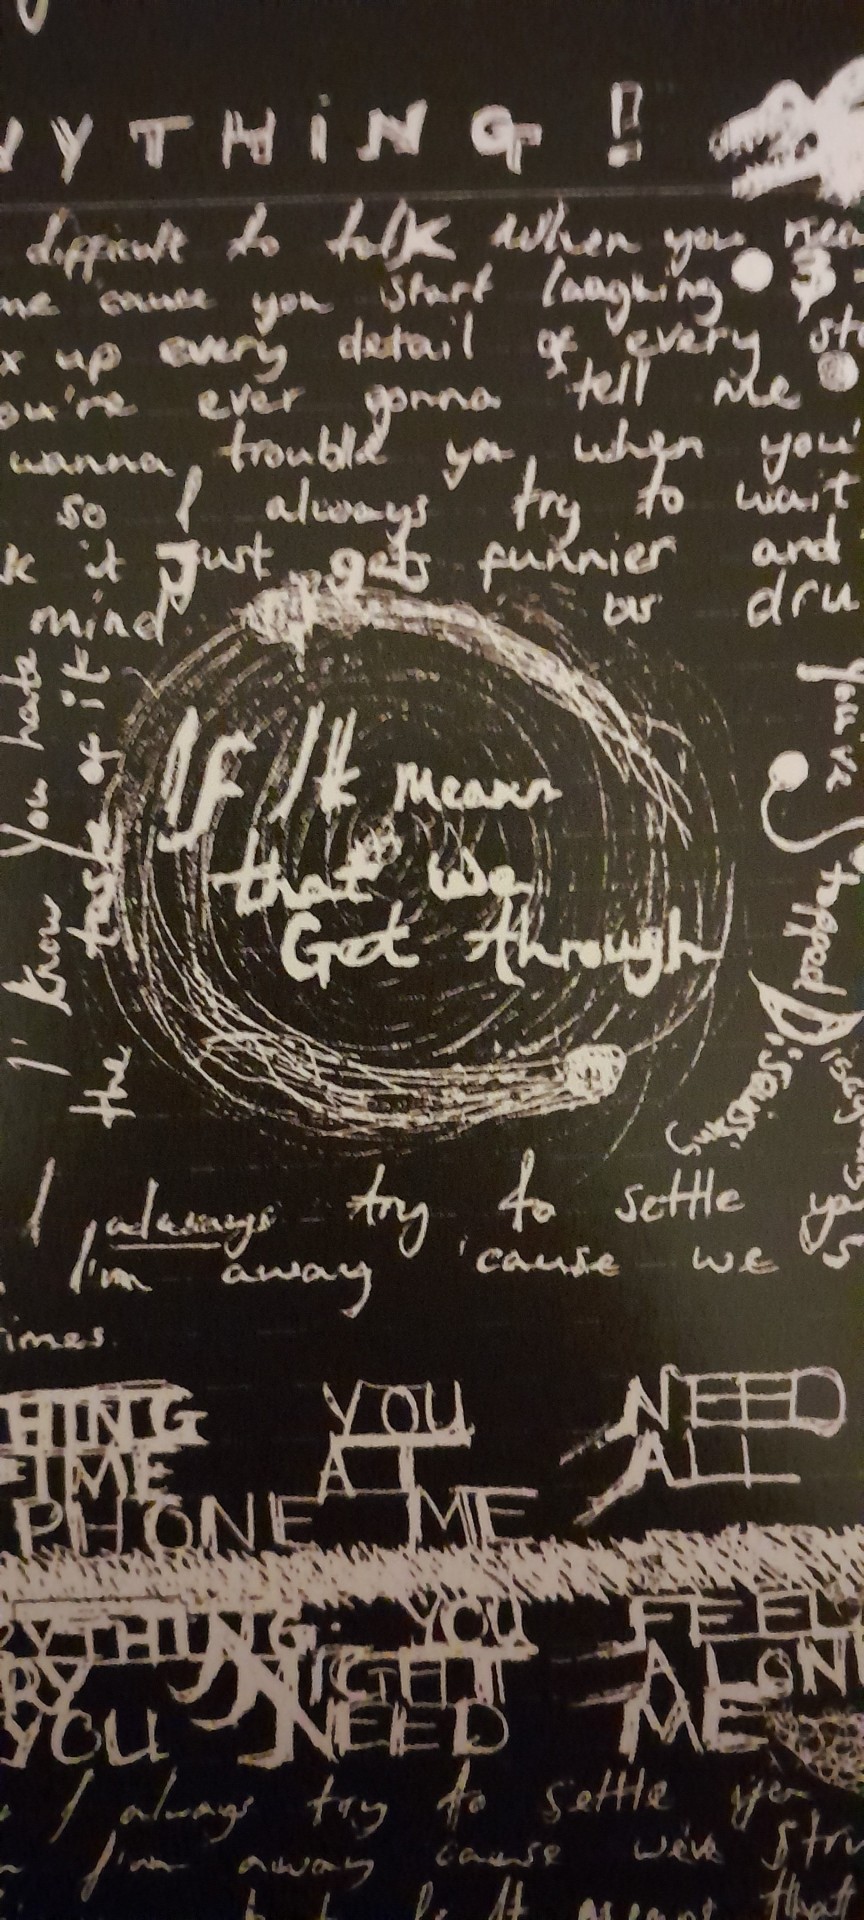 YTHiNG!
difficult to talk when you
me 'cause you start laughing
up every detail of every
you're ever gonna tell me
wanna trouble you when you'
so I always try to wait
it Just gets funnier and
mind
as dru
I know you hate
the task of it
If It means
that we
Get through
You've
topped
Disguise
I always try to settle
I'm away 'cause we
times.
HING YOU NEED
TIME AT ALL
PHONE ME
RYTHING YOU FEEL
RY NIGHT ALON
YOU NEED ME
I always try to settle you
I'm away cause we've stru
that